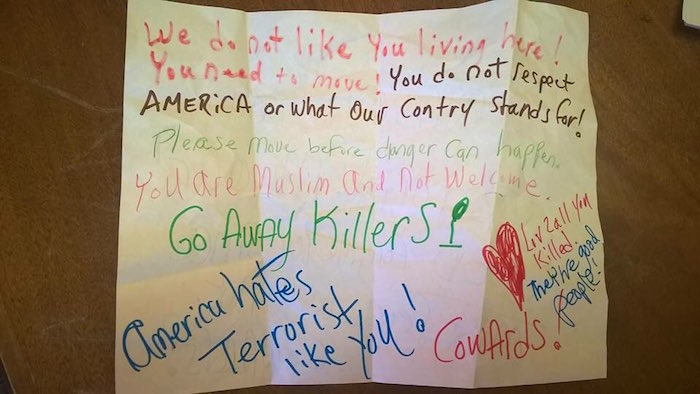 We do not like You living here!
You need to move! You do not respect
AMERiCA or what Our Contry Stands for!
Please Move before danger Can happen.
You are Muslim and Not Welcome.
Go AwAy KillerS!
Luv 2 all You
Killed.
They're good
people!
America hates
Terrorist
like You!
CowArds!